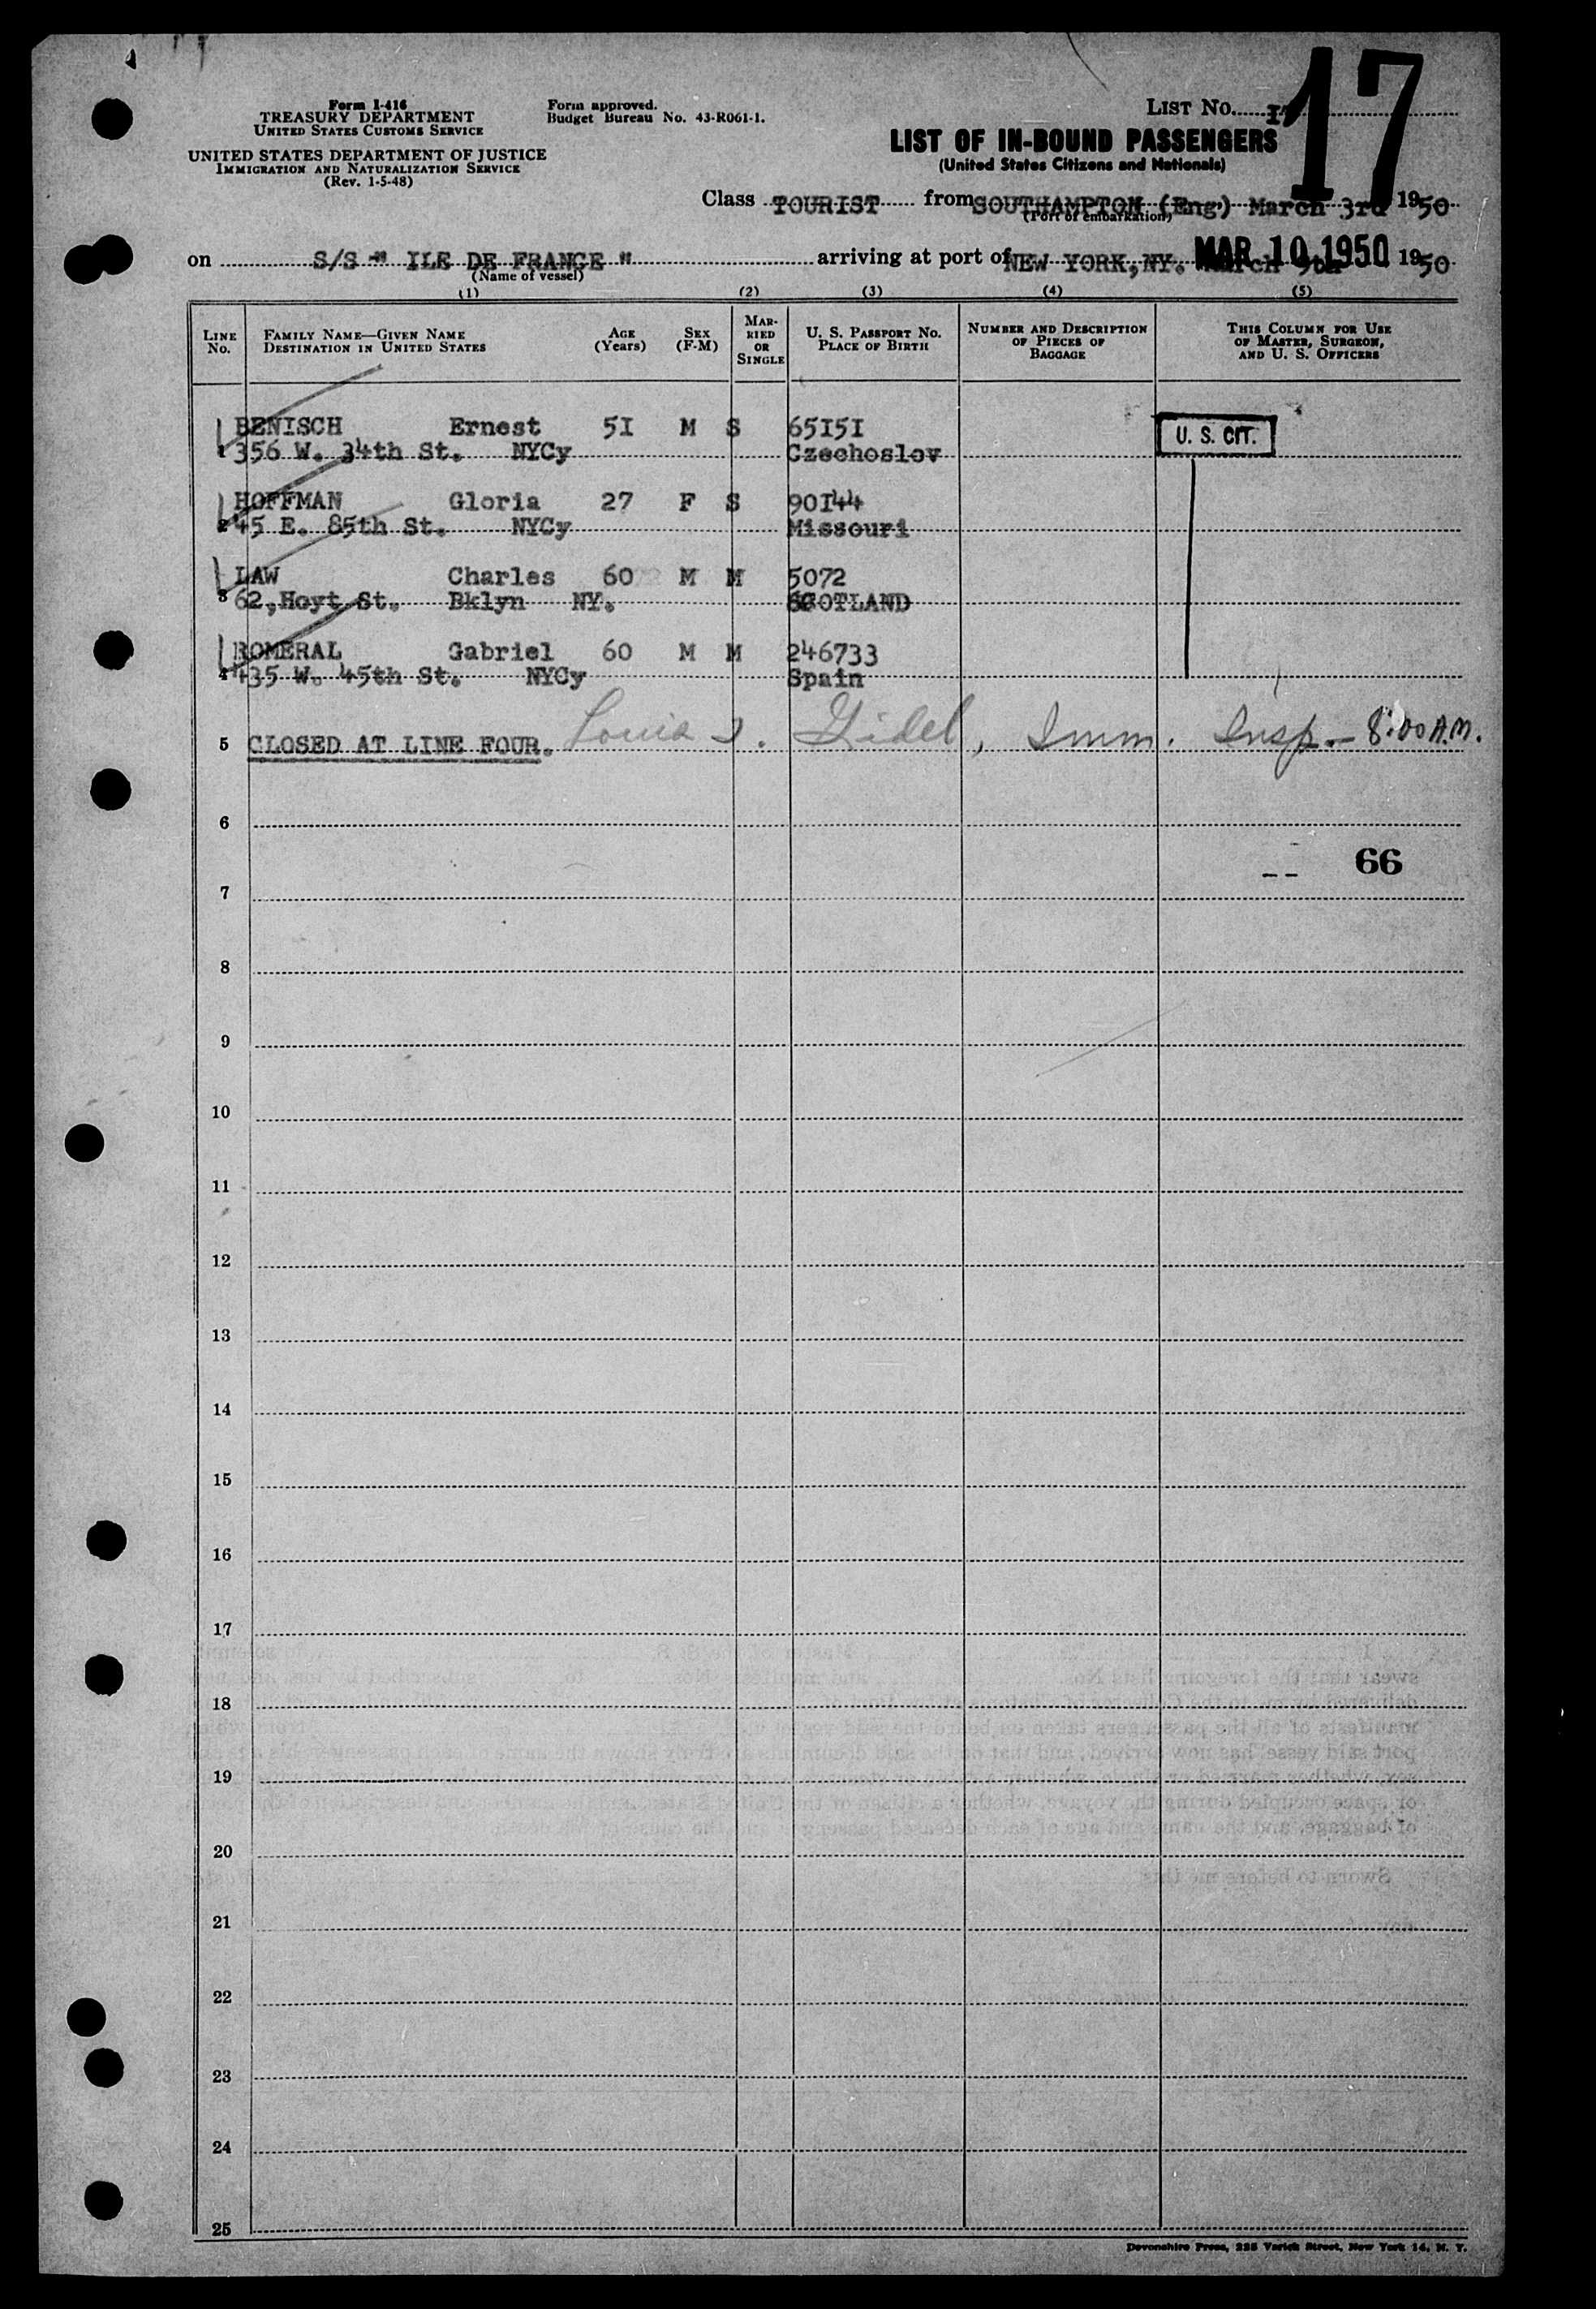 17
Form I-416
TREASURY DEPARTMENT
UNITED STATES CUSTOMS SERVICE
UNITED STATES DEPARTMENT OF JUSTICE
IMMIGRATION AND NATURALIZATION SERVICE
(Rev. 1-5-48)
Form approved.
Budget Bureau No. 43-R061-1.
LIST NO. I7
LIST OF IN-BOUND PASSENGERS
(United States Citizens and Nationals)
Class TOURIST from SOUTHAMPTON (Eng) March 3rd 1950
(Port of embarkation)
on S/S " ILE DE FRANCE " arriving at port of NEW YORK,NY. MAR 10 1950 1950
(Name of vessel)
(1) (2) (3) (4) (5)
LINE No. FAMILY NAME—GIVEN NAME DESTINATION IN UNITED STATES AGE (Years) SEX (F-M) MARRIED OR SINGLE U. S. PASSPORT NO. PLACE OF BIRTH NUMBER AND DESCRIPTION OF PIECES OF BAGGAGE THIS COLUMN FOR USE OF MASTER, SURGEON, AND U. S. OFFICERS
BENISCH Ernest 5I M S 65I5I U. S. CIT.
1 356 W. 34th St. NYCy Czechoslov
HOFFMAN Gloria 27 F S 90I44
2 45 E. 85th St. NYCy Missouri
LAW Charles 60 M M 5072
3 62,Hoyt St. Bklyn NY. SCOTLAND
ROMERAL Gabriel 60 M M 246733
4 435 W. 45th St. NYCy Spain
5 CLOSED AT LINE FOUR. Louis J. Gidel, Imm. Insp. - 8:00 A.M.
6
66
7
8
9
10
11
12
13
14
15
16
17
18
19
20
21
22
23
24
25
Devonshire Press, 225 Varick Street, New York 14, N. Y.